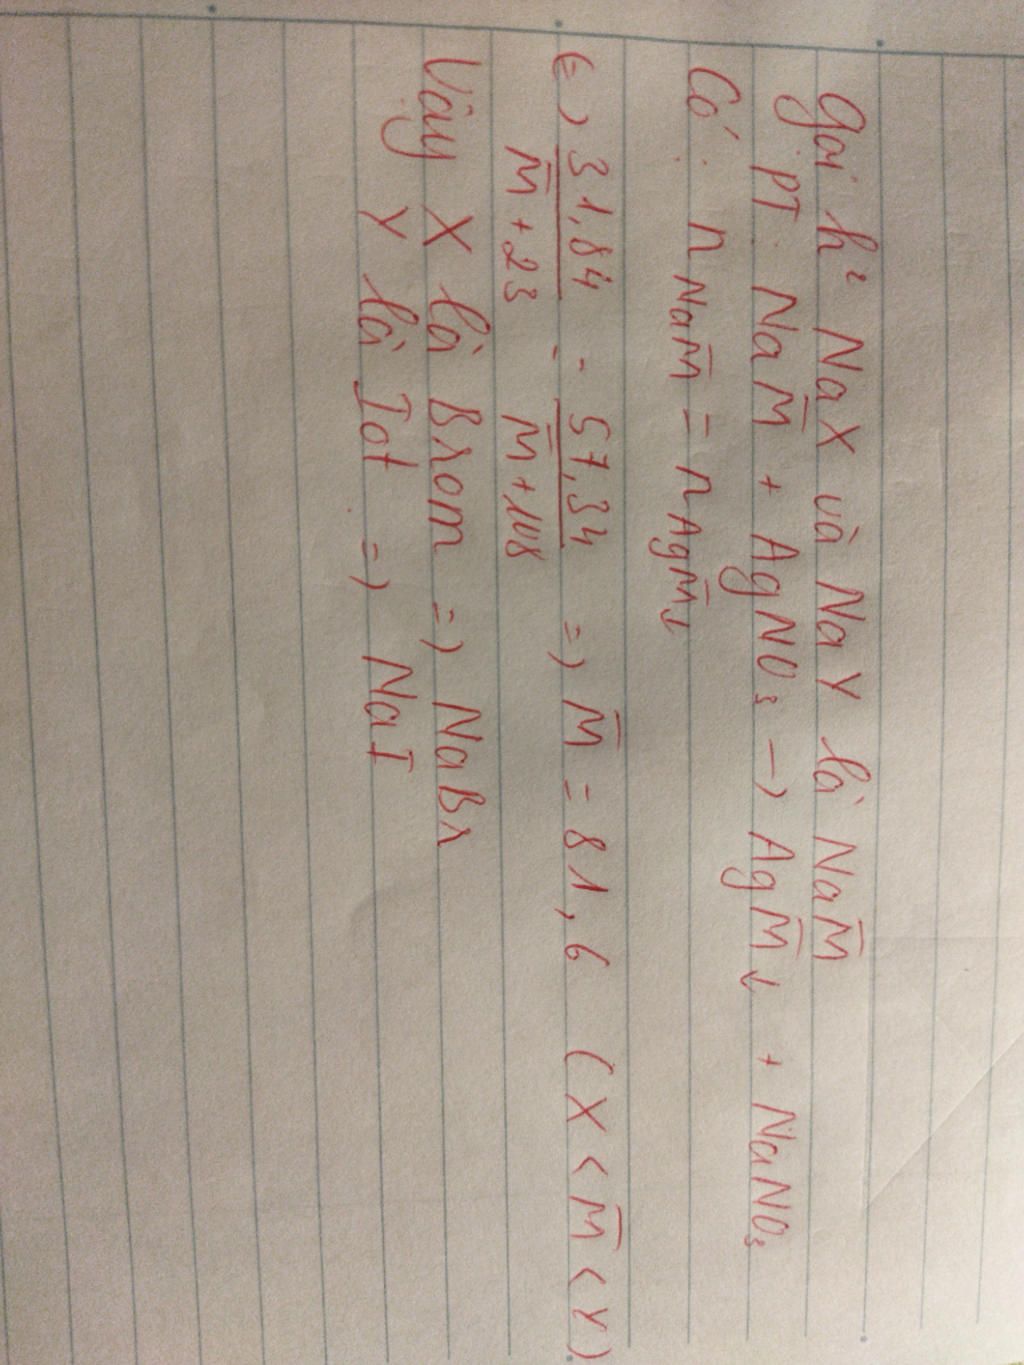 Gọi h² NaX và NaY là NaM̅
PT: NaM̅ + AgNO₃ → AgM̅↓ + NaNO₃
Có: n NaM̅ = n AgM̅↓
(=) 31,84 / M̅ + 23 = 57,34 / M̅ + 108 => M̅ = 81,6 (X < M̅ < Y)
Vậy X là Brom => NaBr
Y là Iot => NaI